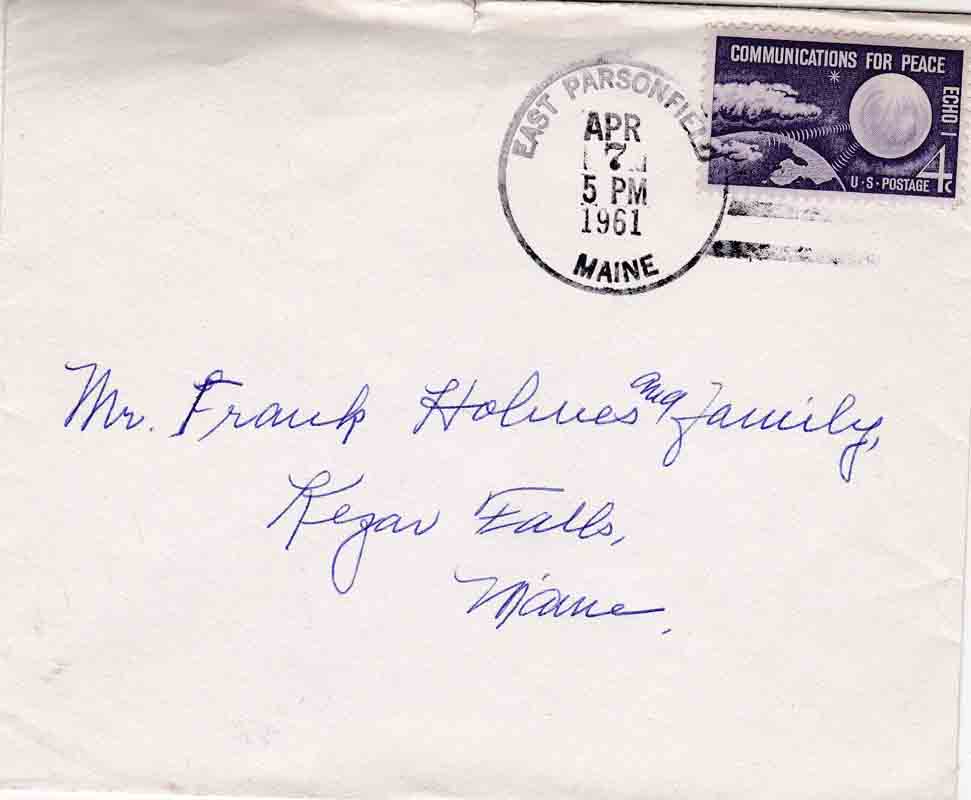 COMMUNICATIONS FOR PEACE
ECHO I
U·S·POSTAGE 4¢
EAST PARSONFIELD
APR
7
5 PM
1961
MAINE
Mr. Frank Holmes and Family,
Kezar Falls,
Maine.